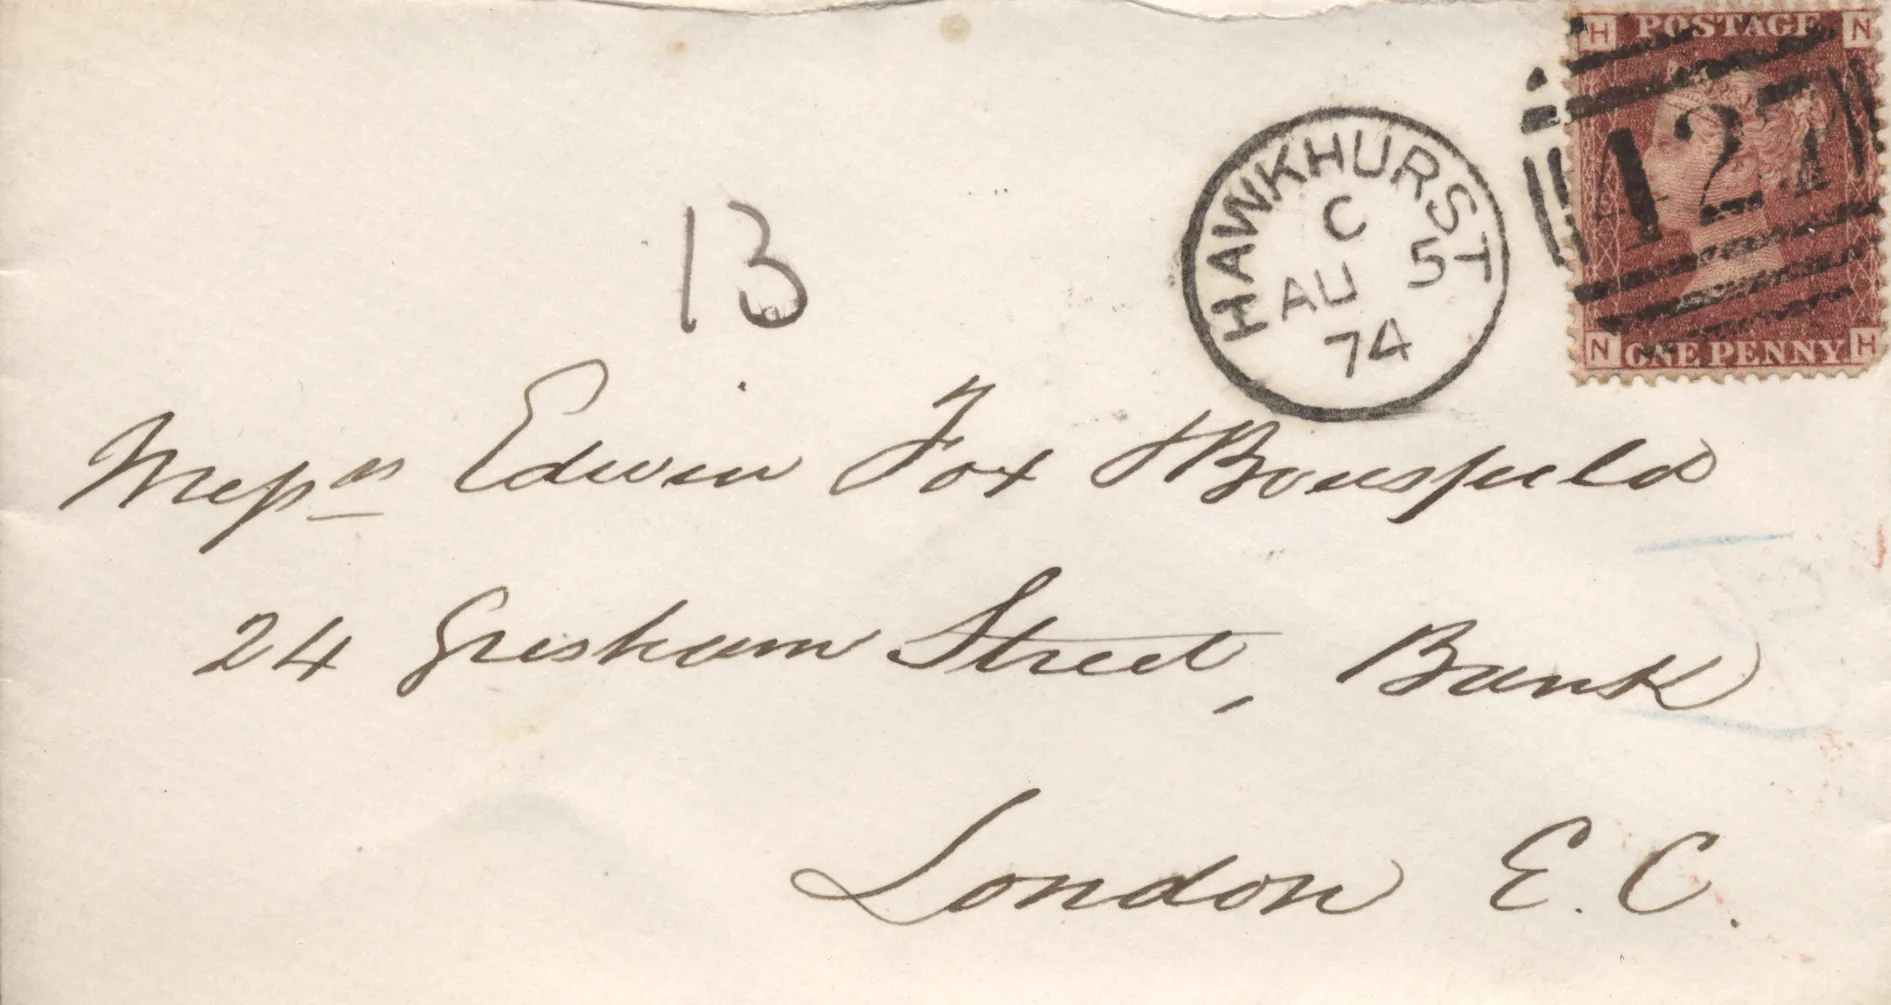 H POSTAGE N
A27
N ONE PENNY H
HAWKHURST
C
AU 5
74
13
Messrs Edwin Fox & Bousfield
24 Gresham Street, Bank
London E.C.